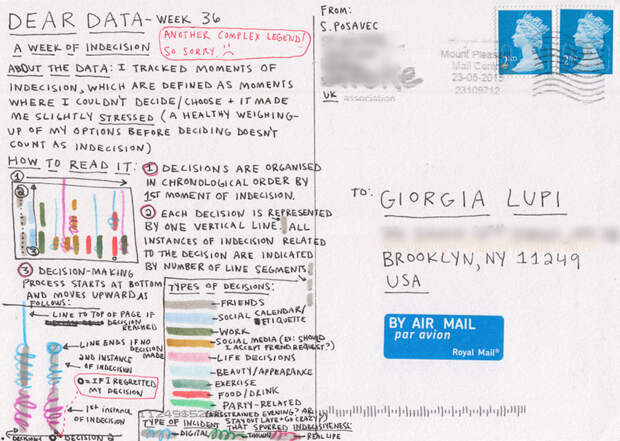 DEAR DATA- WEEK 36
ANOTHER COMPLEX LEGEND!
SO SORRY.
A WEEK OF INDECISION
ABOUT THE DATA: I TRACKED MOMENTS OF
INDECISION, WHICH ARE DEFINED AS MOMENTS
WHERE I COULDN'T DECIDE/CHOOSE + IT MADE
ME SLIGHTLY STRESSED (A HEALTHY WEIGHING-
UP OF MY OPTIONS BEFORE DECIDING DOESN'T
COUNT AS INDECISION)
HOW TO READ IT:
1
2
3
1 DECISIONS ARE ORGANISED
IN CHRONOLOGICAL ORDER BY
1ST MOMENT OF INDECISION.
2 EACH DECISION IS REPRESENTED
BY ONE VERTICAL LINE. ALL
INSTANCES OF INDECISION RELATED
TO THE DECISION ARE INDICATED
BY NUMBER OF LINE SEGMENTS.
3 DECISION-MAKING
PROCESS STARTS AT BOTTOM
AND MOVES UPWARD AS
FOLLOWS:
LINE TO TOP OF PAGE IF
DECISION
REACHED
LINE ENDS IF NO
DECISION
MADE
2ND INSTANCE
OF INDECISION
O=IF I REGRETTED
MY DECISION
1ST INSTANCE
OF INDECISION
DECISION
DECISION 2
TYPES OF DECISIONS:
FRIENDS
SOCIAL CALENDAR/
ETIQUETTE
WORK
SOCIAL MEDIA (EX: SHOULD
I ACCEPT FRIEND REQUEST?)
LIFE DECISIONS
BEAUTY/APPEARANCE
EXERCISE
FOOD/DRINK
PARTY-RELATED
(RESTRAINED EVENING? OR
STAY OUT LATE + GO CRAZY?)
TYPE OF INCIDENT THAT SPURRED INDECISIVENESS:
DIGITAL
THOUGHT
REAL LIFE
FROM:
S. POSAVEC
UK
Mount Pleasant
Mail Centre
23-06-2015
23109712
association
2ND
2ND
TO:
GIORGIA LUPI
BROOKLYN, NY 11249
USA
BY AIR MAIL
par avion
Royal Mail®